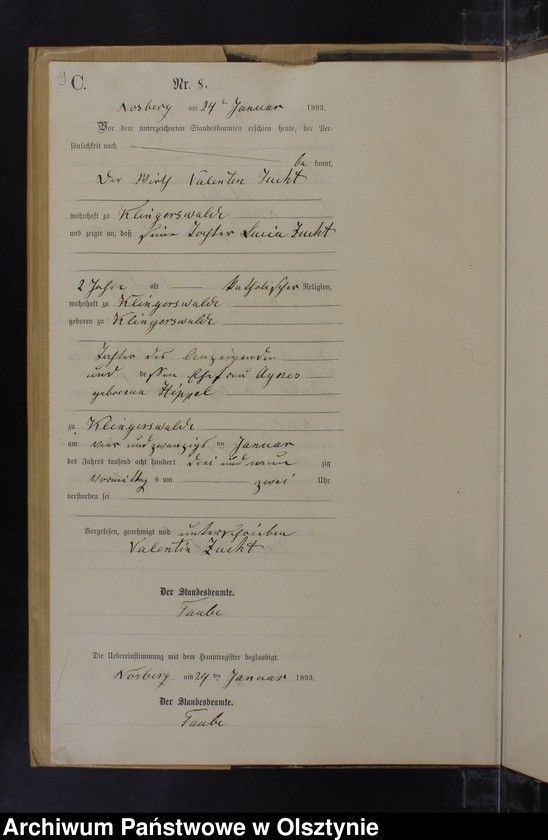 9 C.
Nr. 8.
Nosberg am 24 Januar 1893.
Vor dem unterzeichneten Standesbeamten erschien heute, der Per-
sönlichkeit nach
be kannt,
Der Wirth Valentin Zucht
wohnhaft zu Klingerswalde
und zeigte an, daß seine Tochter Lucia Zucht
2 Jahre alt katholischer Religion,
wohnhaft zu Klingerswalde
geboren zu Klingerswalde
Tochter des Anzeigenden
und dessen Ehefrau Agnes
geborene Hippel
zu Klingerswalde
am vier und zwanzigs ten Januar
des Jahres tausend acht hundert drei und neun zig
Vormittag s um zwei Uhr
verstorben sei
Vorgelesen, genehmigt und unterschrieben
Valentin Zucht
Der Standesbeamte.
Taube
Die Uebereinstimmung mit dem Hauptregister beglaubigt.
Nosberg am 24 ten Januar 1893.
Der Standesbeamte.
Taube
Archiwum Państwowe w Olsztynie